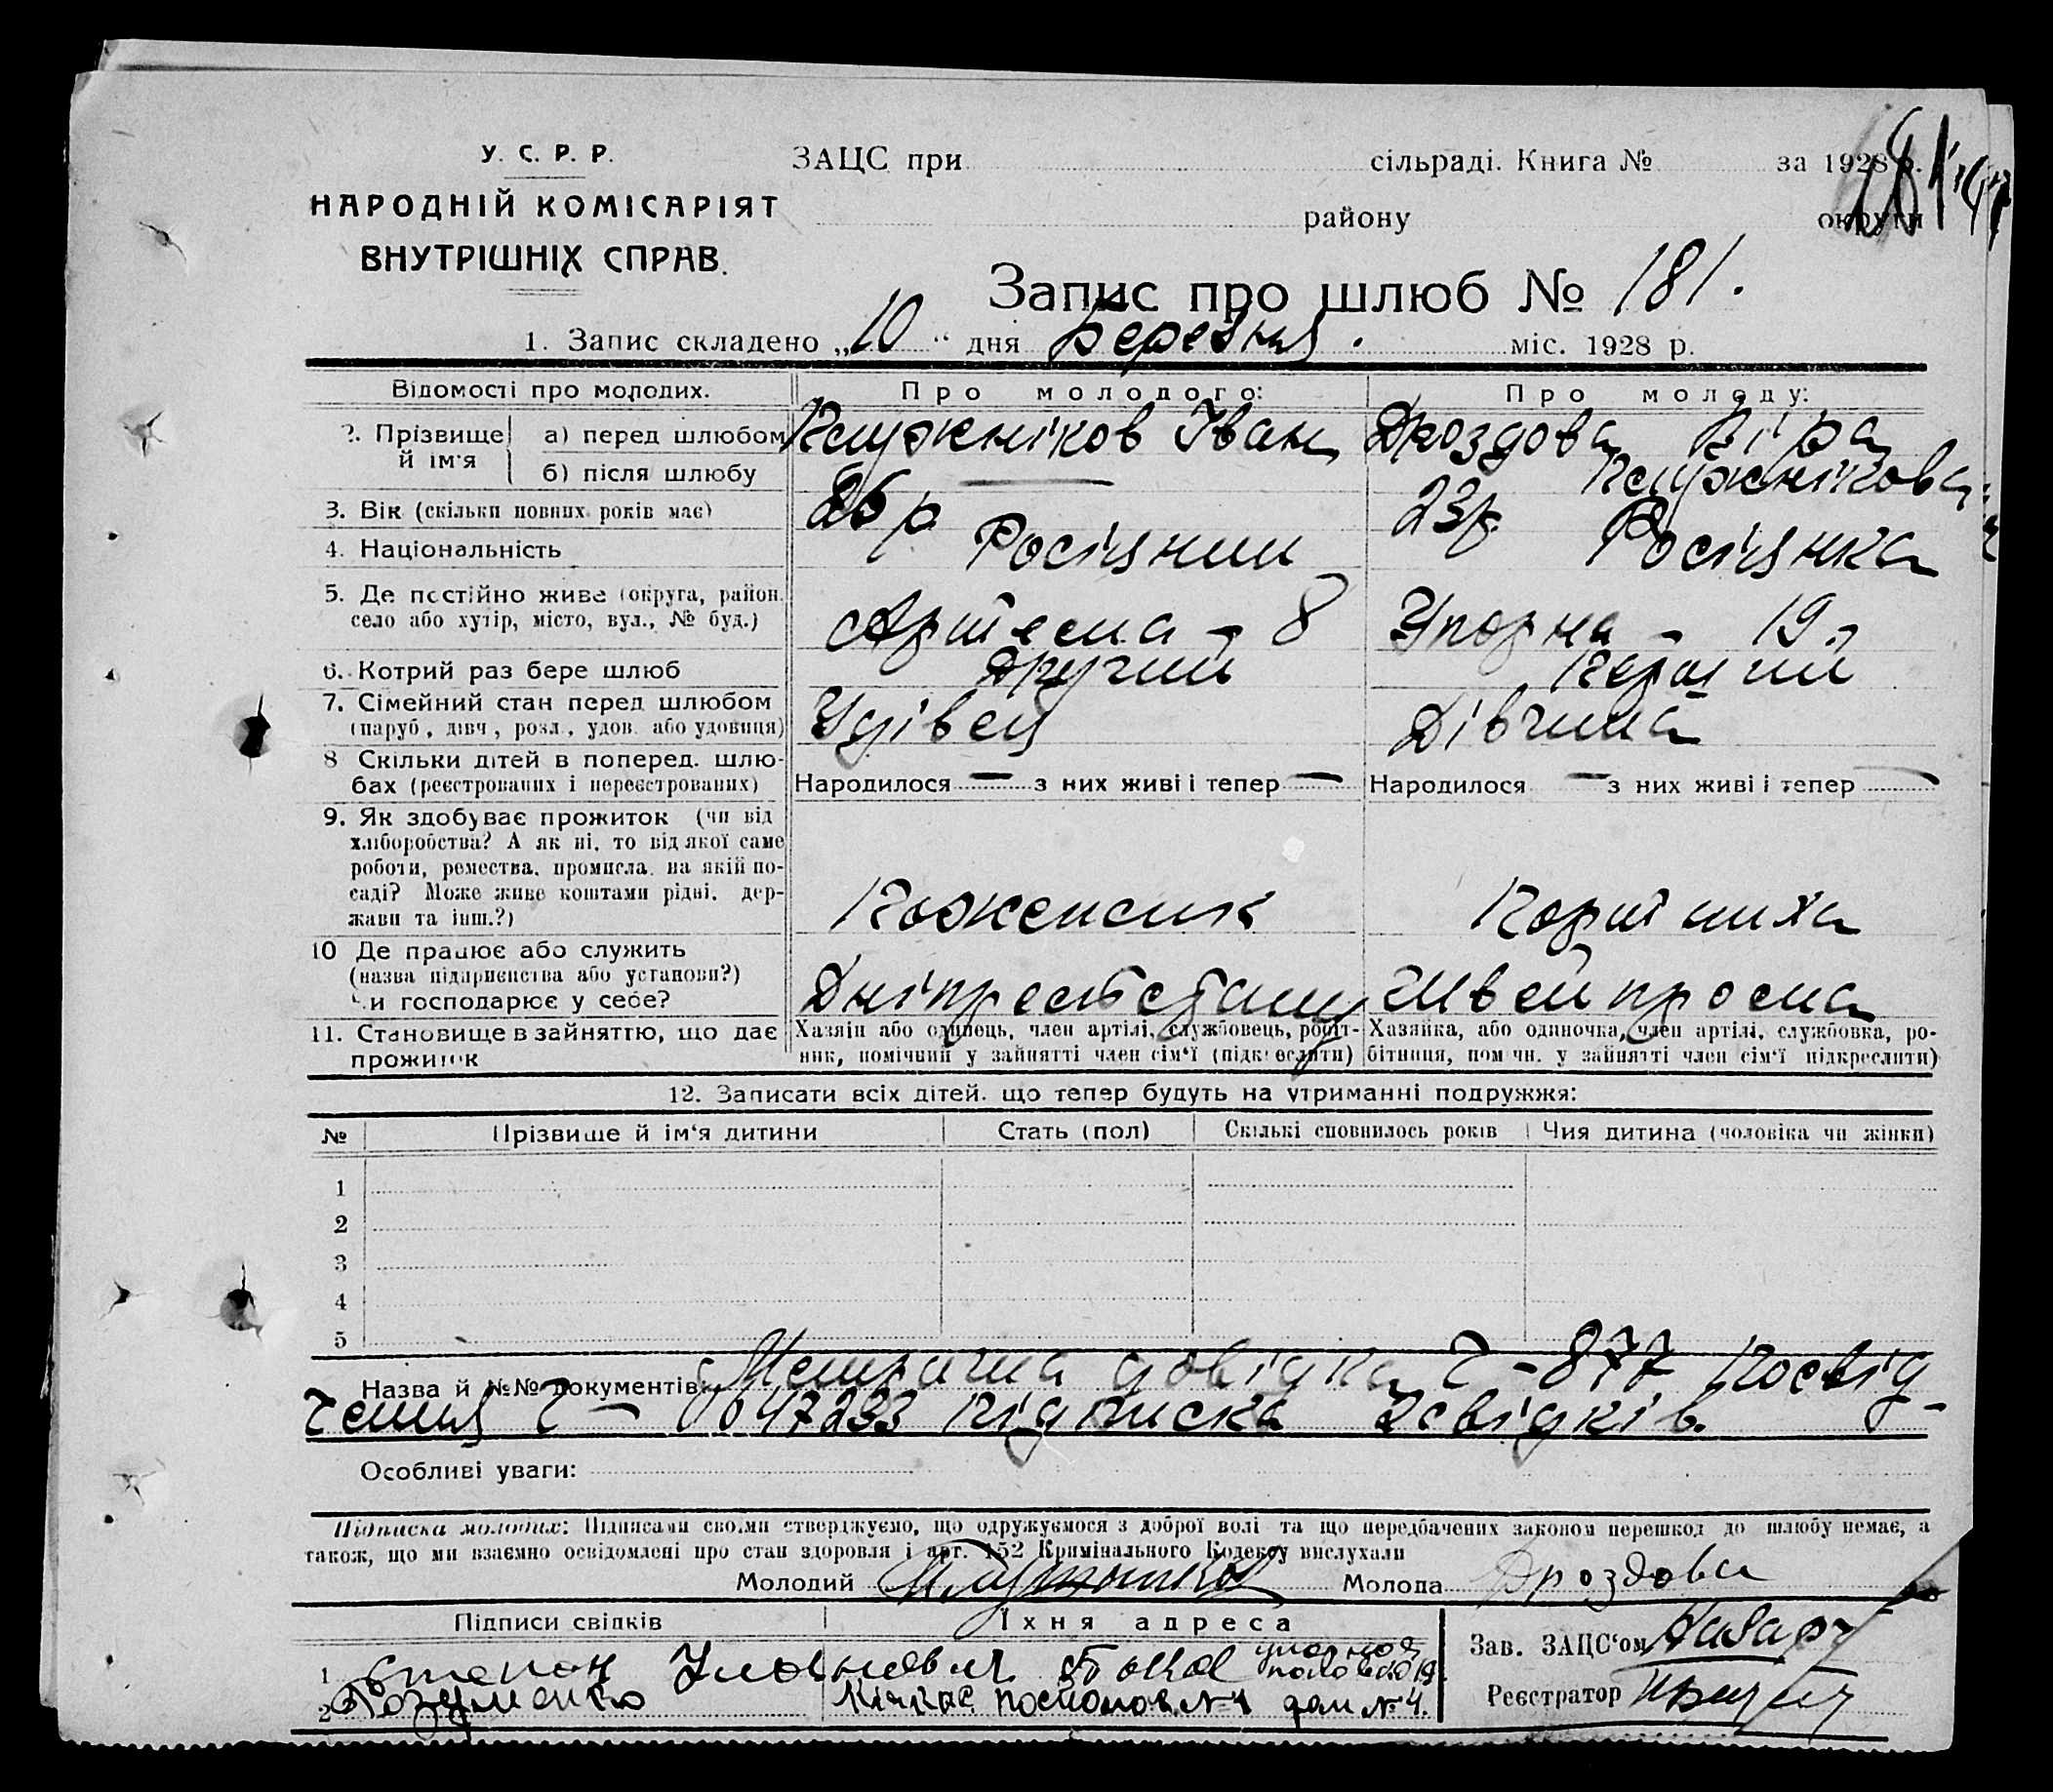 У. С. Р. Р.
НАРОДНІЙ КОМІСАРІЯТ
ВНУТРІШНІХ СПРАВ.
ЗАЦС при сільраді. Книга № за 1928 р.
району округи
Запис про шлюб № 181.
1. Запис складено „10“ дня Березня. міс. 1928 р.
Відомості про молодих. Про молодого: Про молоду:
2. Прізвище й ім'я а) перед шлюбом Іван Дроздова Віра
б) після шлюбу —
3. Вік (скільки повних років має) 26 р. 23 р.
4. Національність Росіянин Росіянка
5. Де постійно живе (округа, район, Артема - 8 Упорна - 19.
село або хутір, місто, вул., № буд.)
6. Котрий раз бере шлюб Другий Перший
7. Сімейний стан перед шлюбом Удівець Дівчина
(паруб., дівч., розл., удов. або удовиця)
8 Скільки дітей в поперед. шлю-
бах (реєстрованих і нереєстрованих) Народилося — з них живі і тепер — Народилося — з них живі і тепер —
9. Як здобуває прожиток (чи від
хліборобства? А як ні, то від якої саме
роботи, ремества, промисла, на якій по-
саді? Може живе коштами рідні, дер-
жави та інш.?)
10 Де працює або служить
(назва підприємства або установи?)
Чи господарює у себе? Швейпрома
11. Становище в зайняттю, що дає
прожиток
Хазяїн або одинець, член артілі, службовець, робіт-
ник, помічний у зайнятті член сім'ї (підкреслити)
Хазяйка, або одиночка, член артілі, службовка, ро-
бітниця, пом чн. у зайнятті член сім'ї підкреслити)
12. Записати всіх дітей, що тепер будуть на утриманні подружжя:
№ Прізвище й ім'я дитини Стать (пол) Скількі сповнилось років Чия дитина (чоловіка чи жінки)
1
2
3
4
5
Назва й №№ документів: Метрична довідка Ч - 877 Посвід-
чення Ч — 047233 Підписка 2 свідків.
Особливі уваги:
Підписка молодих: Підписами своїми стверджуємо, що одружуємося з доброї волі та що передбачених законом перешкод до шлюбу немає, а
також, що ми взаємно освідомлені про стан здоровля і арт. 152 Кримінального Кодексу вислухали
Молодий Молода Дроздова
Підписи свідків Їхня адреса
Зав. ЗАЦС'ом
1 Степан
Реєстратор
2 Розуменко дом № 4.